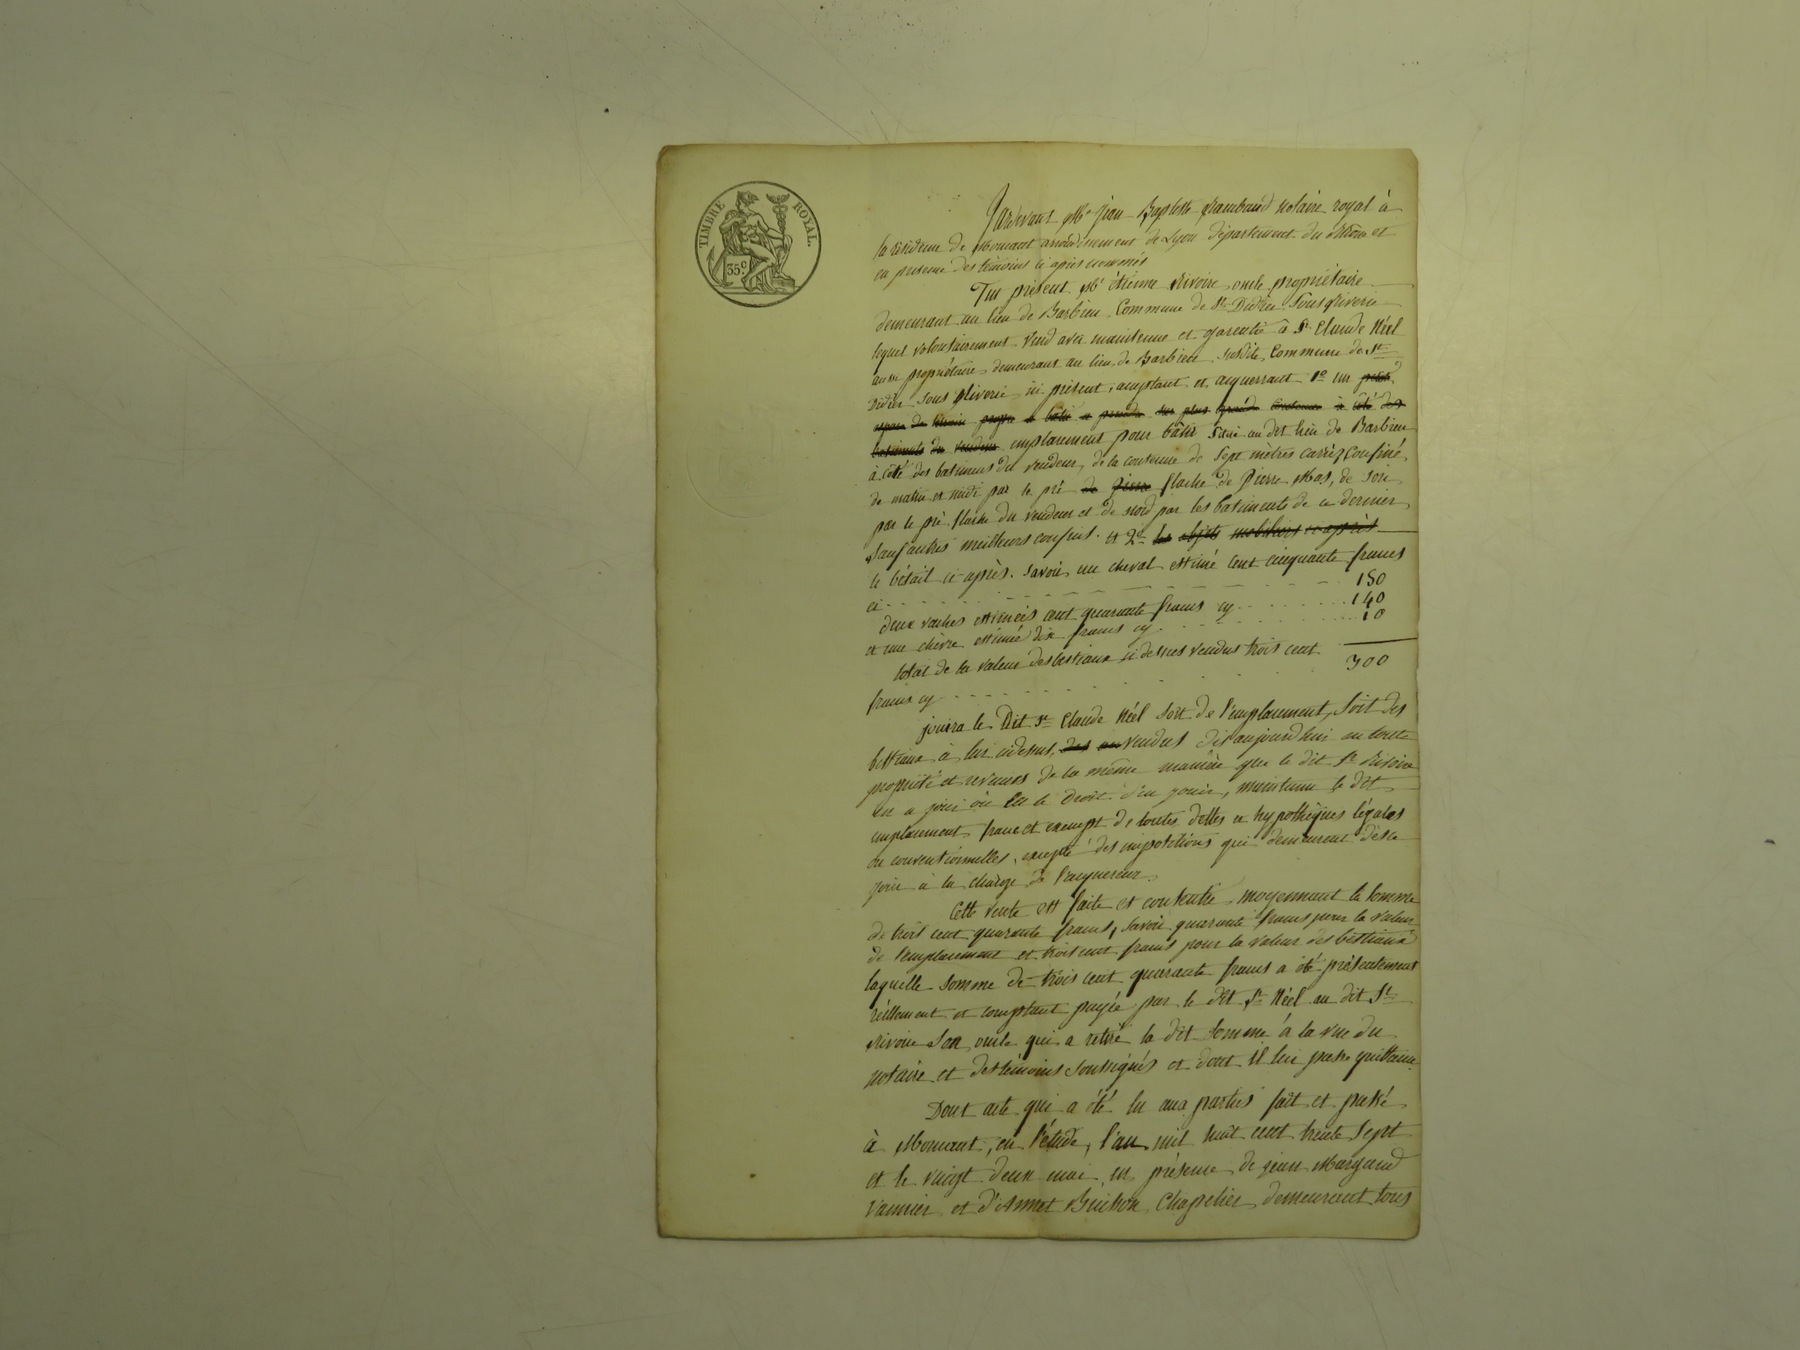 TIMBRE ROYAL.
35c
Pardevant Me Jean Baptiste Rambaud notaire royal à
la résidence de Mornant arrondissement de Lyon département du Rhône et
en présence des témoins ci après nommés
Fut présent Mr étienne Rivoire oncle propriétaire
demeurant au lieu de Barbieu Commune de St Didier Sous Riverie
lequel volontairement vend avec maintenue et garentie à Sr Claude Néel
aussi propriétaire demeurant au lieu de Barbieu susdite Commune de St
Didier Sous Riverie ici présent, acceptant et acquerrant 1o un petit
espace de terrain propre à bâtir à prendre sur plus grand contenue à côté des
batiments du vendeur emplacement pour bâtir situé au dit lieu de Barbieu
à côté des batimens du vendeur, de la contenue de Sept mètres carrés confiné,
de matin et midi par le pré de Pierre flache de Pierre Mas, de soir
par le pré flache du vendeur et de nord par les batiments de ce dernier
Sauf autres meilleurs confins. et 2o les objets mobiliers ci après
le bétail ci après. Savoir, un cheval estimé cent cinquante francs
ci 150
deux vaches estimées cent quarante francs cy 140
et une chèvre estimée dix francs cy 10
total de la valeur des bestiaux ci dessus vendus trois cent
francs cy 300
jouira le Dit Sr Claude Néel soit de l'emplacement, soit des
bestiaux à lui cidessus, vendus dès aujourd'hui en toute
propriété et revenus de la même manière que le dit Sr Rivoire
en a joui ou eu le droit d'en jouir, maintenu le dit
emplacement franc et exempt de toutes dettes et hypothèques légales
ou conventionnelles, excepté des impositions qui demeurent dès ce
jour à la charge de l'acquereur.
Cette vente est faite et contentée moyennant la somme
de trois cent quarante francs, savoir quarante francs pour la valeur
de l'emplacement et trois cent francs pour la valeur des bestiaux
laquelle somme de trois cent quarante francs a été présentement
réellement et comptant payée par le dit Sr Néel au dit Sr
Rivoire Son oncle qui a retiré la dit somme à la vue du
notaire et des témoins soussignés et dont il lui passe quittance
Dont acte qui a été lu aux parties fait et passé
à Mornant, en l'étude, l'an mil huit cent trente sept
et le vingt deux mai en présence de jean Margand
Vannier et d'Annet Buchon Chapelier demeurant tous